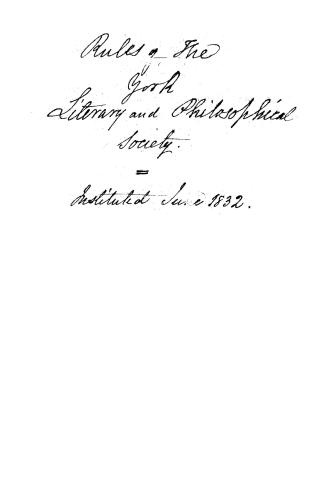 Rules of The
York
Literary and Philosophical
Society.
=
Instituted June 1832.